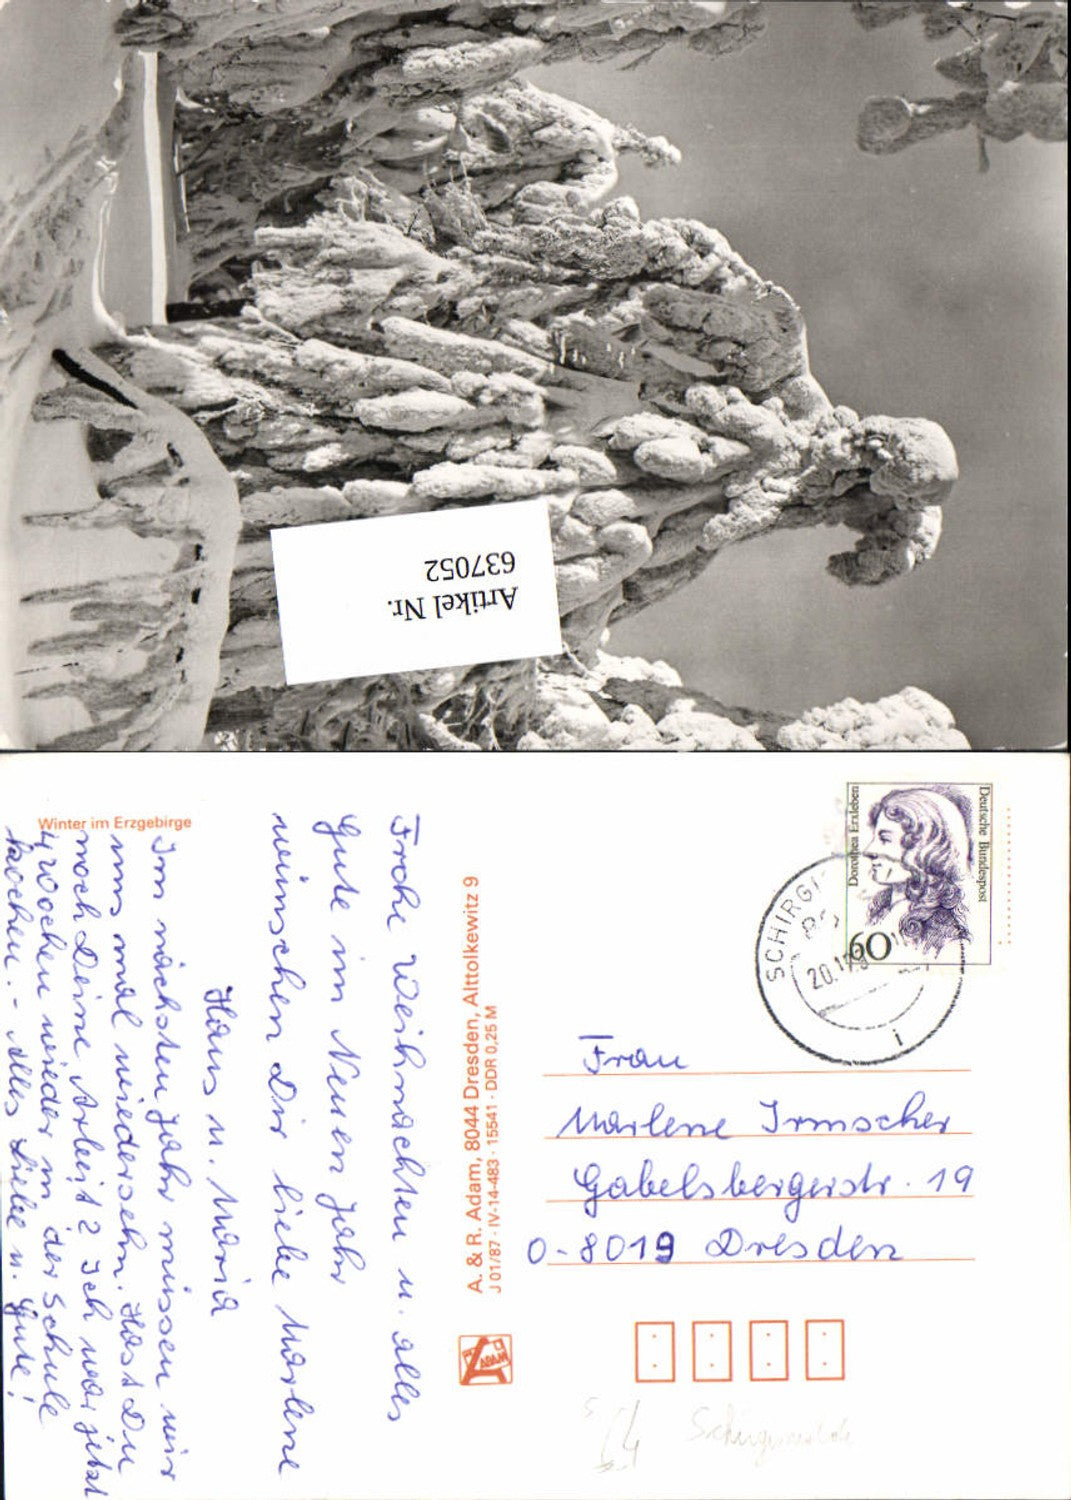 Artikel Nr.
637052
Winter im Erzgebirge
Frohe Weihnachten u. alles
Gute im Neuen Jahr
wünschen Dir liebe Marlene
Hans u. Maria
Im nächsten Jahr müssen wir
uns mal wiedersehn. Hast Du
noch Deine Arbeit? Ich war jetzt
4 Wochen wieder in der Schule
kochen. - Alles Liebe u. Gute!
A. & R. Adam, 8044 Dresden, Alttolkewitz 9
J 01/87 · IV-14-483 · 15541 · DDR 0,25 M
ADAM
Deutsche Bundespost
Dorothea Erxleben
60
SCHIRGI
20.12
i
Frau
Marlene Irmscher
Gabelsbergerstr. 19
0-8019 Dresden
Schirgiswalde